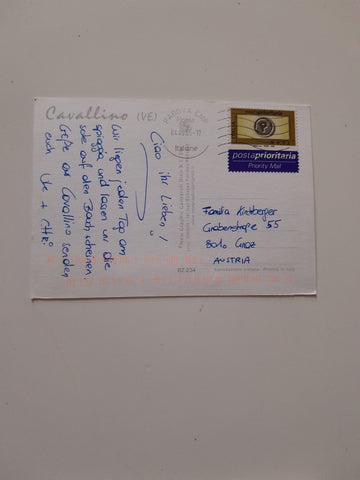 Cavallino (VE)
Ciao ihr Lieben!
Wir liegen jeden Tag am
spiaggia und lassen uns die
sole auf den Bauch scheinen.
Grüße aus Cavallino senden
euch Ute +
PADOVA CMP
Italiane
postaprioritaria
Priority Mail
Familie Kirchberger
Grabenstraße 55
8010 Graz
AUSTRIA
RZ.234